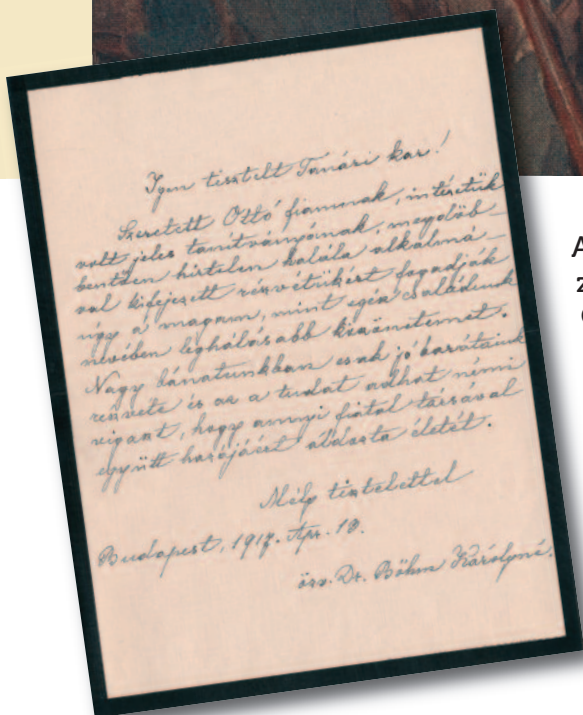 Igen tisztelt Tanári kar!
Szeretett Ottó fiamnak, intézetük
volt jeles tanítványának, megdöb-
bentően hirtelen halála alkalmá-
val kifejezett részvétükért fogadják
úgy a magam, mint egész családunk
nevében leghálásabb köszönetemet.
Nagy bánatunkban csak jó barátaink
részvéte és az a tudat adhat némi
vigaszt, hogy annyi fiatal társával
együtt hazájáért áldozta életét.
Mély tisztelettel
Budapest, 1917. Apr. 18.
özv. Dr. Böhm Károlyné.
A
z